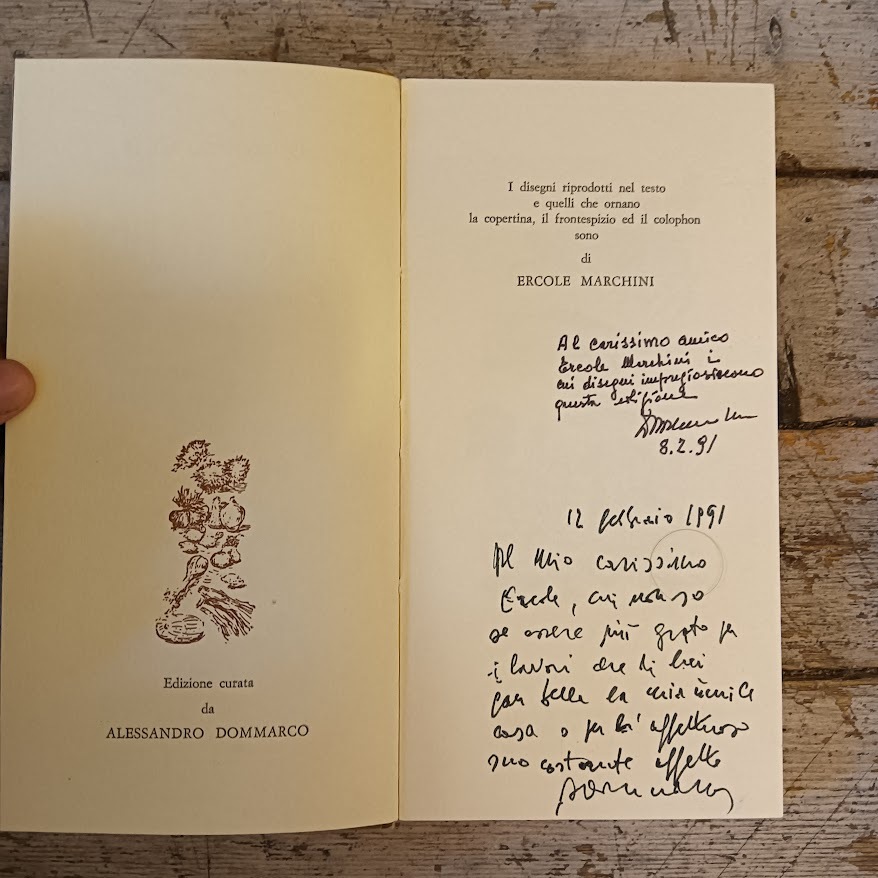 Edizione curata
da
ALESSANDRO DOMMARCO
I disegni riprodotti nel testo
e quelli che ornano
la copertina, il frontespizio ed il colophon
sono
di
ERCOLE MARCHINI
Al carissimo amico
Ercole Marchini i
cui disegni impreziosiscono
questa edizione
8.2.91
12 febbraio 1991
Al mio carissimo
Ercole, cui non so
se essere più grato per
i lavori che di lui
fan bella la mia umile
casa o per l'affettuoso
suo costante affetto